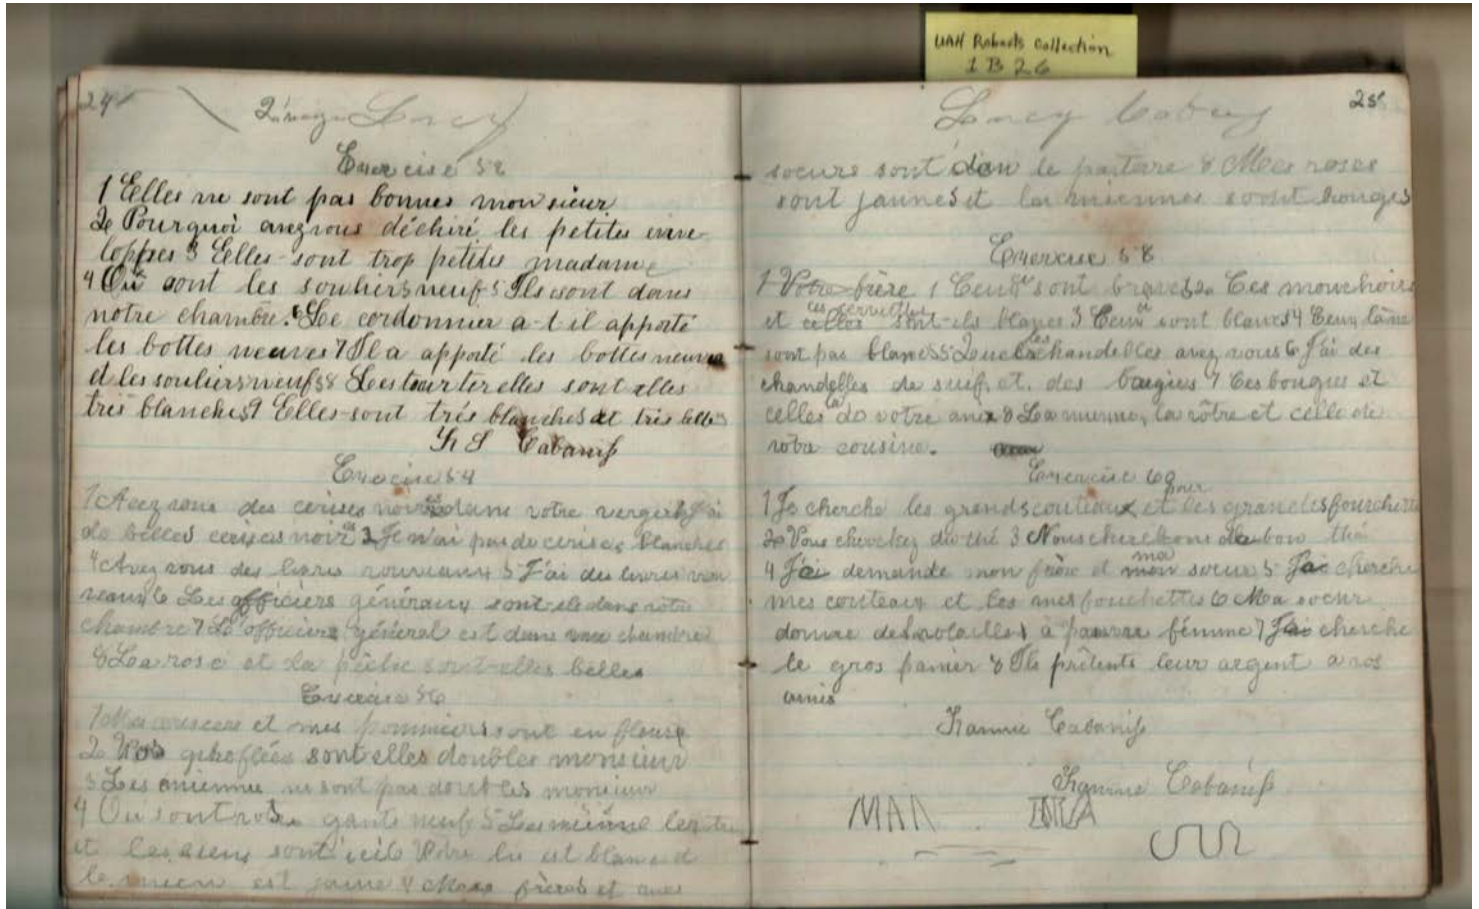 UAH Roberts Collection
1 B 26
24
Lucy
Exercise 52
1 Elles ne sont pas bonnes monsieur
2 Pourquoi avez vous déchiré les petites enve-
loppes 3 Elles sont trop petites madame
4 Où sont les souliers neufs 5 Ils sont dans
notre chambre. 6 Le cordonnier a-t-il apporté
les bottes neuves 7 Il a apporté les bottes neuves
et les souliers neufs 8 Les tourterelles sont elles
très blanches 9 Elles sont très blanches et très belles
Cabaniss
Exercise 54
1 Avez vous des cerises noires dans votre verger 2 J'ai
de belles cerises noires 3 Je n'ai pas de cerises blanches
4 Avez vous des livres nouveaux 5 J'ai des livres nou
veaux 6 Les officiers généraux sont-ils dans votre
chambre 7 Le officiers général est dans ma chambre
8 La rose et la pêche sont-elles belles
Exercise 56
1 Ma et mes pommiers sont en fleurs
2 Vos giroflées sont elles doubles monsieur
3 Les miennes ne sont pas doubles monsieur
4 Où sont votre gants neufs 5 Les mienne
et les siens sont ici 6 Votre est blanc et
le mien est jaune 7 Mes frères et mes
25
Lucy Cabaniss
soeurs sont dan le 8 Mes roses
sont jaunes et la miennes sont rouges
Exercise 58
1 Votre frère 1 Ceux sont braves 2 Ces mouchoirs
et celles ces serviettes sont-ils blancs 3 Ceux ci sont blancs 4 Ceux là ne
sont pas blancs 5 Quelles chandelles avez vous 6 J'ai des
chandelles de suif et des bougies 7 Ces bougies et
celles la de votre 8 La mienne, la vôtre et celle de
votre cousine.
Exercise 60
1 Je cherche les grands couteaux et les grandes fourchettes
2 Vous cherchez du thé 3 Nous cherchons de bon thé
4 J'ai demande mon frère et mon ma soeur 5 J'ai cherche
mes couteaux et les mes fouchettes 6 Ma soeur
donne des volailles à pauvre femme 7 J'ai cherche
le gros panier 8 Ils prêtent leur argent a vos
amis
Fannie Cabaniss
Fannie Cabaniss
MAN